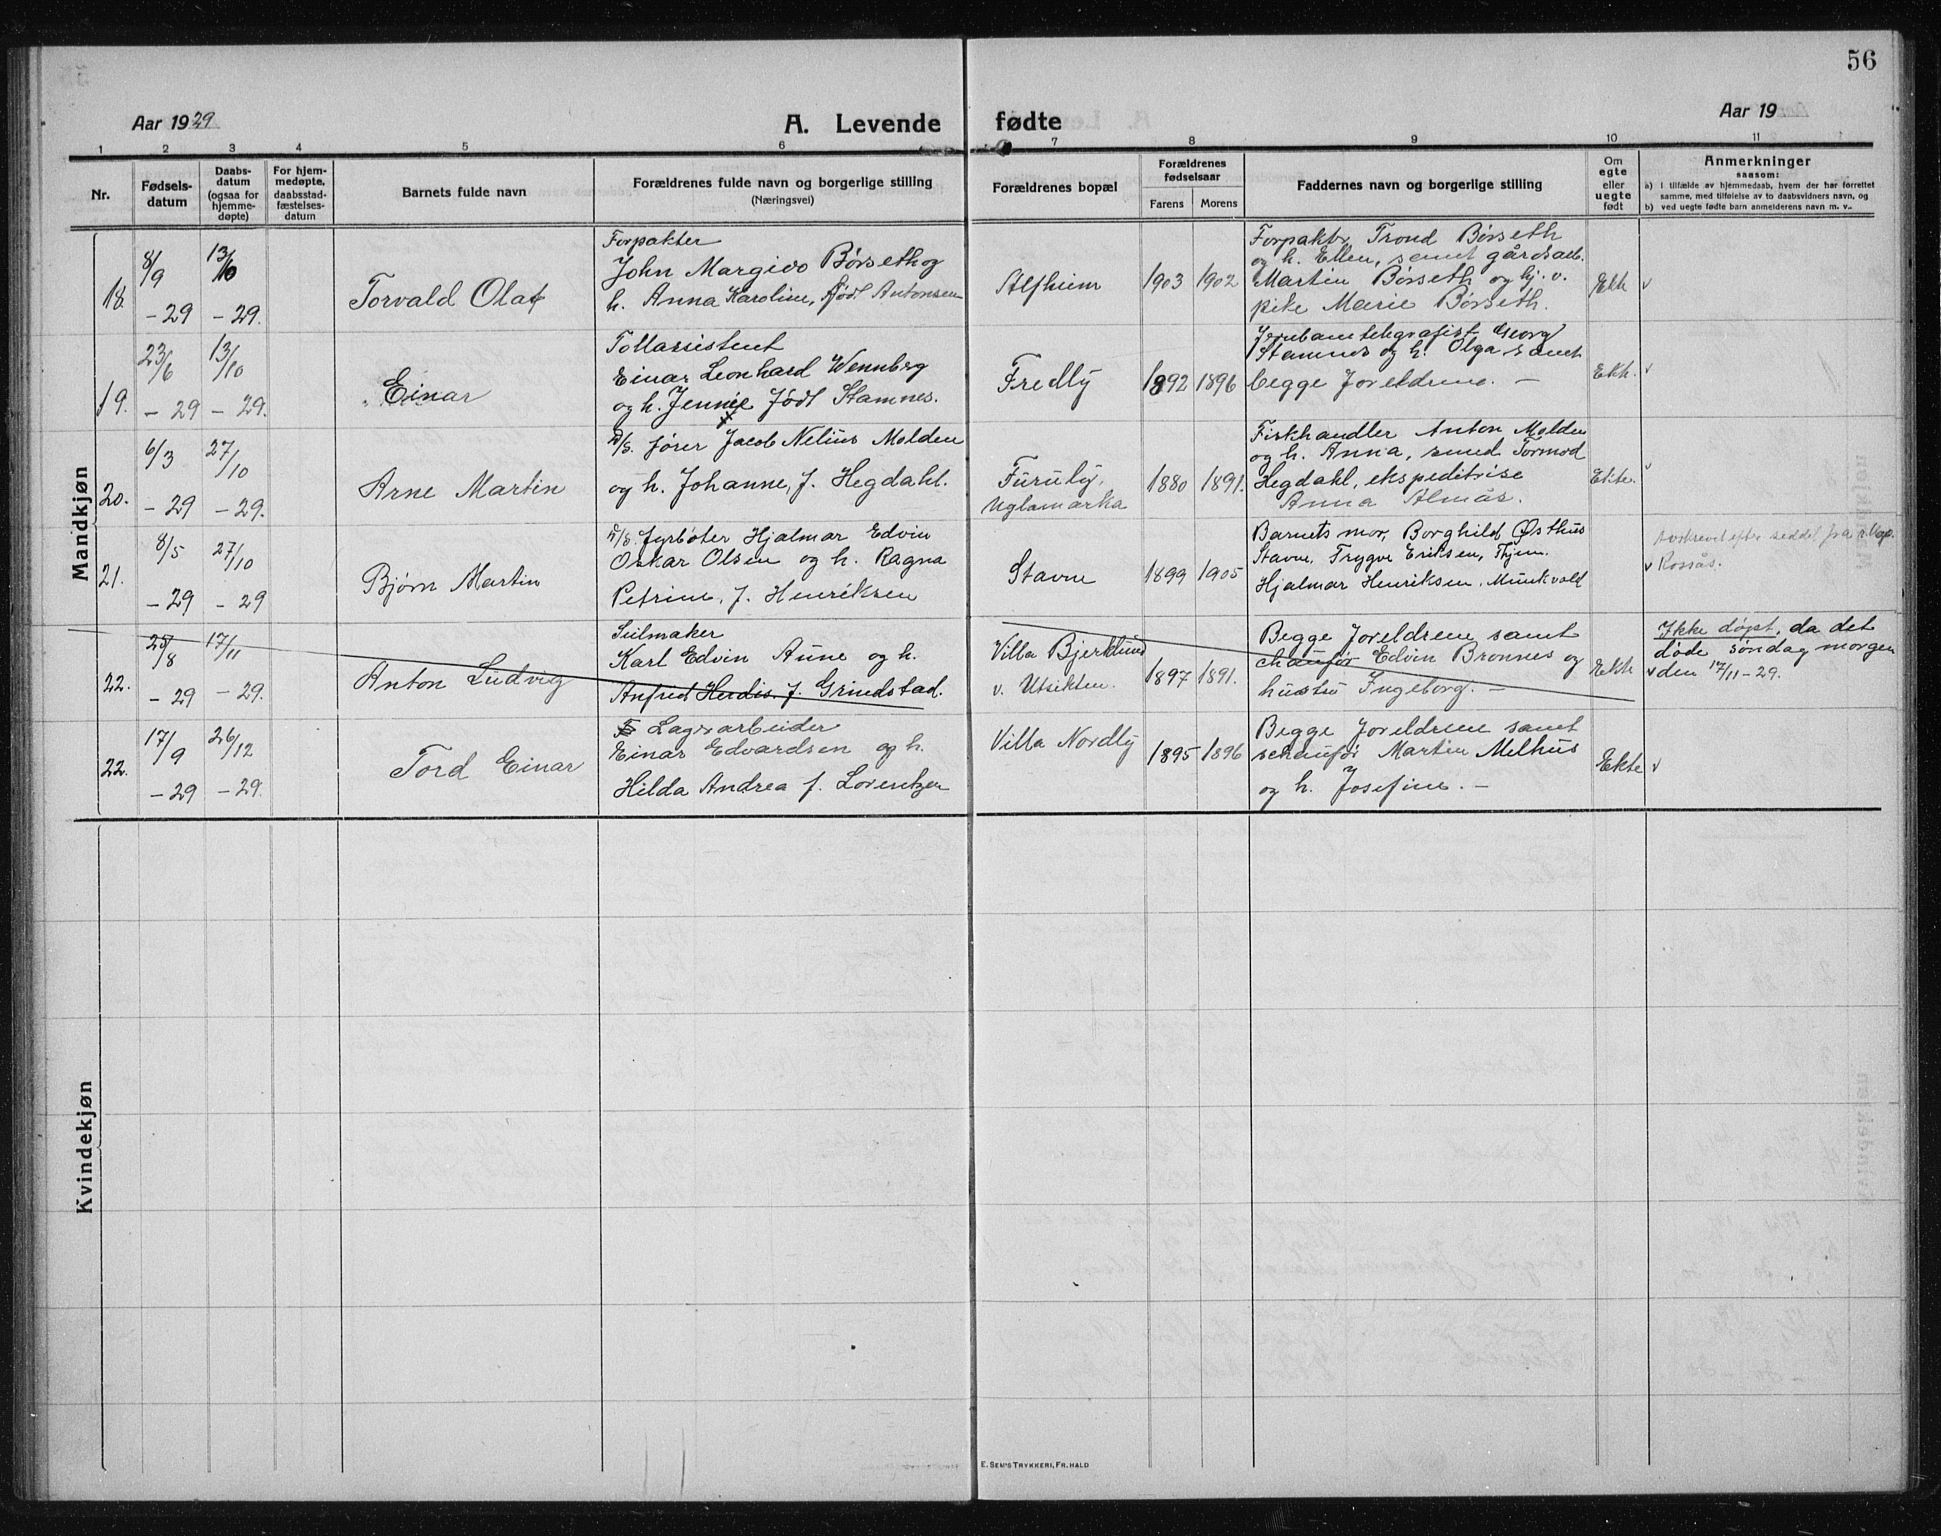 56
Aar 1929
A. Levende fødte
Aar 19
1 2 3 4 5 6 7 8 9 10 11
Nr.
Fødsels-
datum
Daabs-
datum
(ogsaa for
hjemme-
døpte)
For hjem-
medøpte,
daabsstad-
fæstelses-
datum
Barnets fulde navn
Forældrenes fulde navn og borgerlige stilling
(Næringsvei)
Forældrenes bopæl
Forældrenes
fødselsaar
Farens Morens
Faddernes navn og borgerlige stilling
Om
egte
eller
uegte
født
Anmerkninger
saasom:
a) i tilfælde av hjemmedaab, hvem der har forrettet
samme, med tilføielse av to daabsvidners navn, og
b) ved uegte fødte barn anmelderens navn m. v.
Mandkjøn
18.
8/9
-29
13/10
-29.
Torvald Olaf
Forpakter
John Margido Børseth og
h. Anna Karoline, født Antonsen
Alfheim
1903 1902
Forpakter Trond Børseth
og h. Ellen, samt gårdsarb.
Martin Børseth og hj. v.
pike Marie Børseth.
Ekt
19.
23/6
-29
13/10
-29.
Einar
Tollassistent
Einar Leonhard Wennberg
og h. Jennie født Stamnes.
Fredly
1892 1896
Jernbanetelegrafist Georg
Stamnes og h. Olga samt
begge foreldrene. —
Ekt.
20.
6/3
-29
27/10
-29.
Arne Martin
D/S. fører Jacob Nelius Molden
og h. Johanne, f. Hegdahl.
Furuly,
Uglamarka
1880 1891.
Fiskhandler Anton Molden
og h. Anna, smed Tormod
Hegdahl, ekspeditrise
Anna Almås.
Ekte.
21.
8/5
-29
27/10
-29
Bjørn Martin
D/S. fyrbøter Hjalmar Edvin
Oskar Olsen og h. Ragna
Petrine, f. Henriksen
Stavne
1899 1905
Barnets mor, Borghild Østhus
Stavne, Trygve Eriksen, Thjem.
Hjalmar Henriksen, Munkvold
seddel fra
Rossås.
22.
28/8
-29
17/11
-29.
Anton Ludvig
Seilmaker
Karl Edvin Aune og h.
Anfrid Herdis f. Grindstad.
Villa Bjerklund
v. Utsikten.
1897 1891.
Begge foreldrene samt
chaufør Edvin Brønnes og
hustru Ingeborg. —
Ekte
Ikke døpt, da det
døde søndag morgen
den 17/11-29.
22.
17/9
-29
26/12
-29.
Tord Einar
Lagerarbeider
Einar Edvardsen og h.
Hilda Andrea f. Lorentzen
Villa Nordly
1895 1896
Begge foreldrene samt
schaufør Martin Melhus
og h. Josefine. —
Ekte
Kvindekjøn
E. SEM'S TRYKKERI, FR.HALD